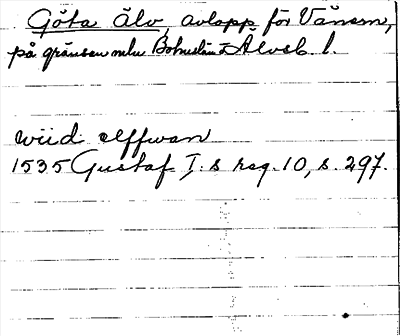 Göta Älv, avlopp för Vänern,
på gränsen mellan Bohuslän o Älvsb. l.
wiid elffwan
1535 Gustaf I:s reg. 10, s. 297.